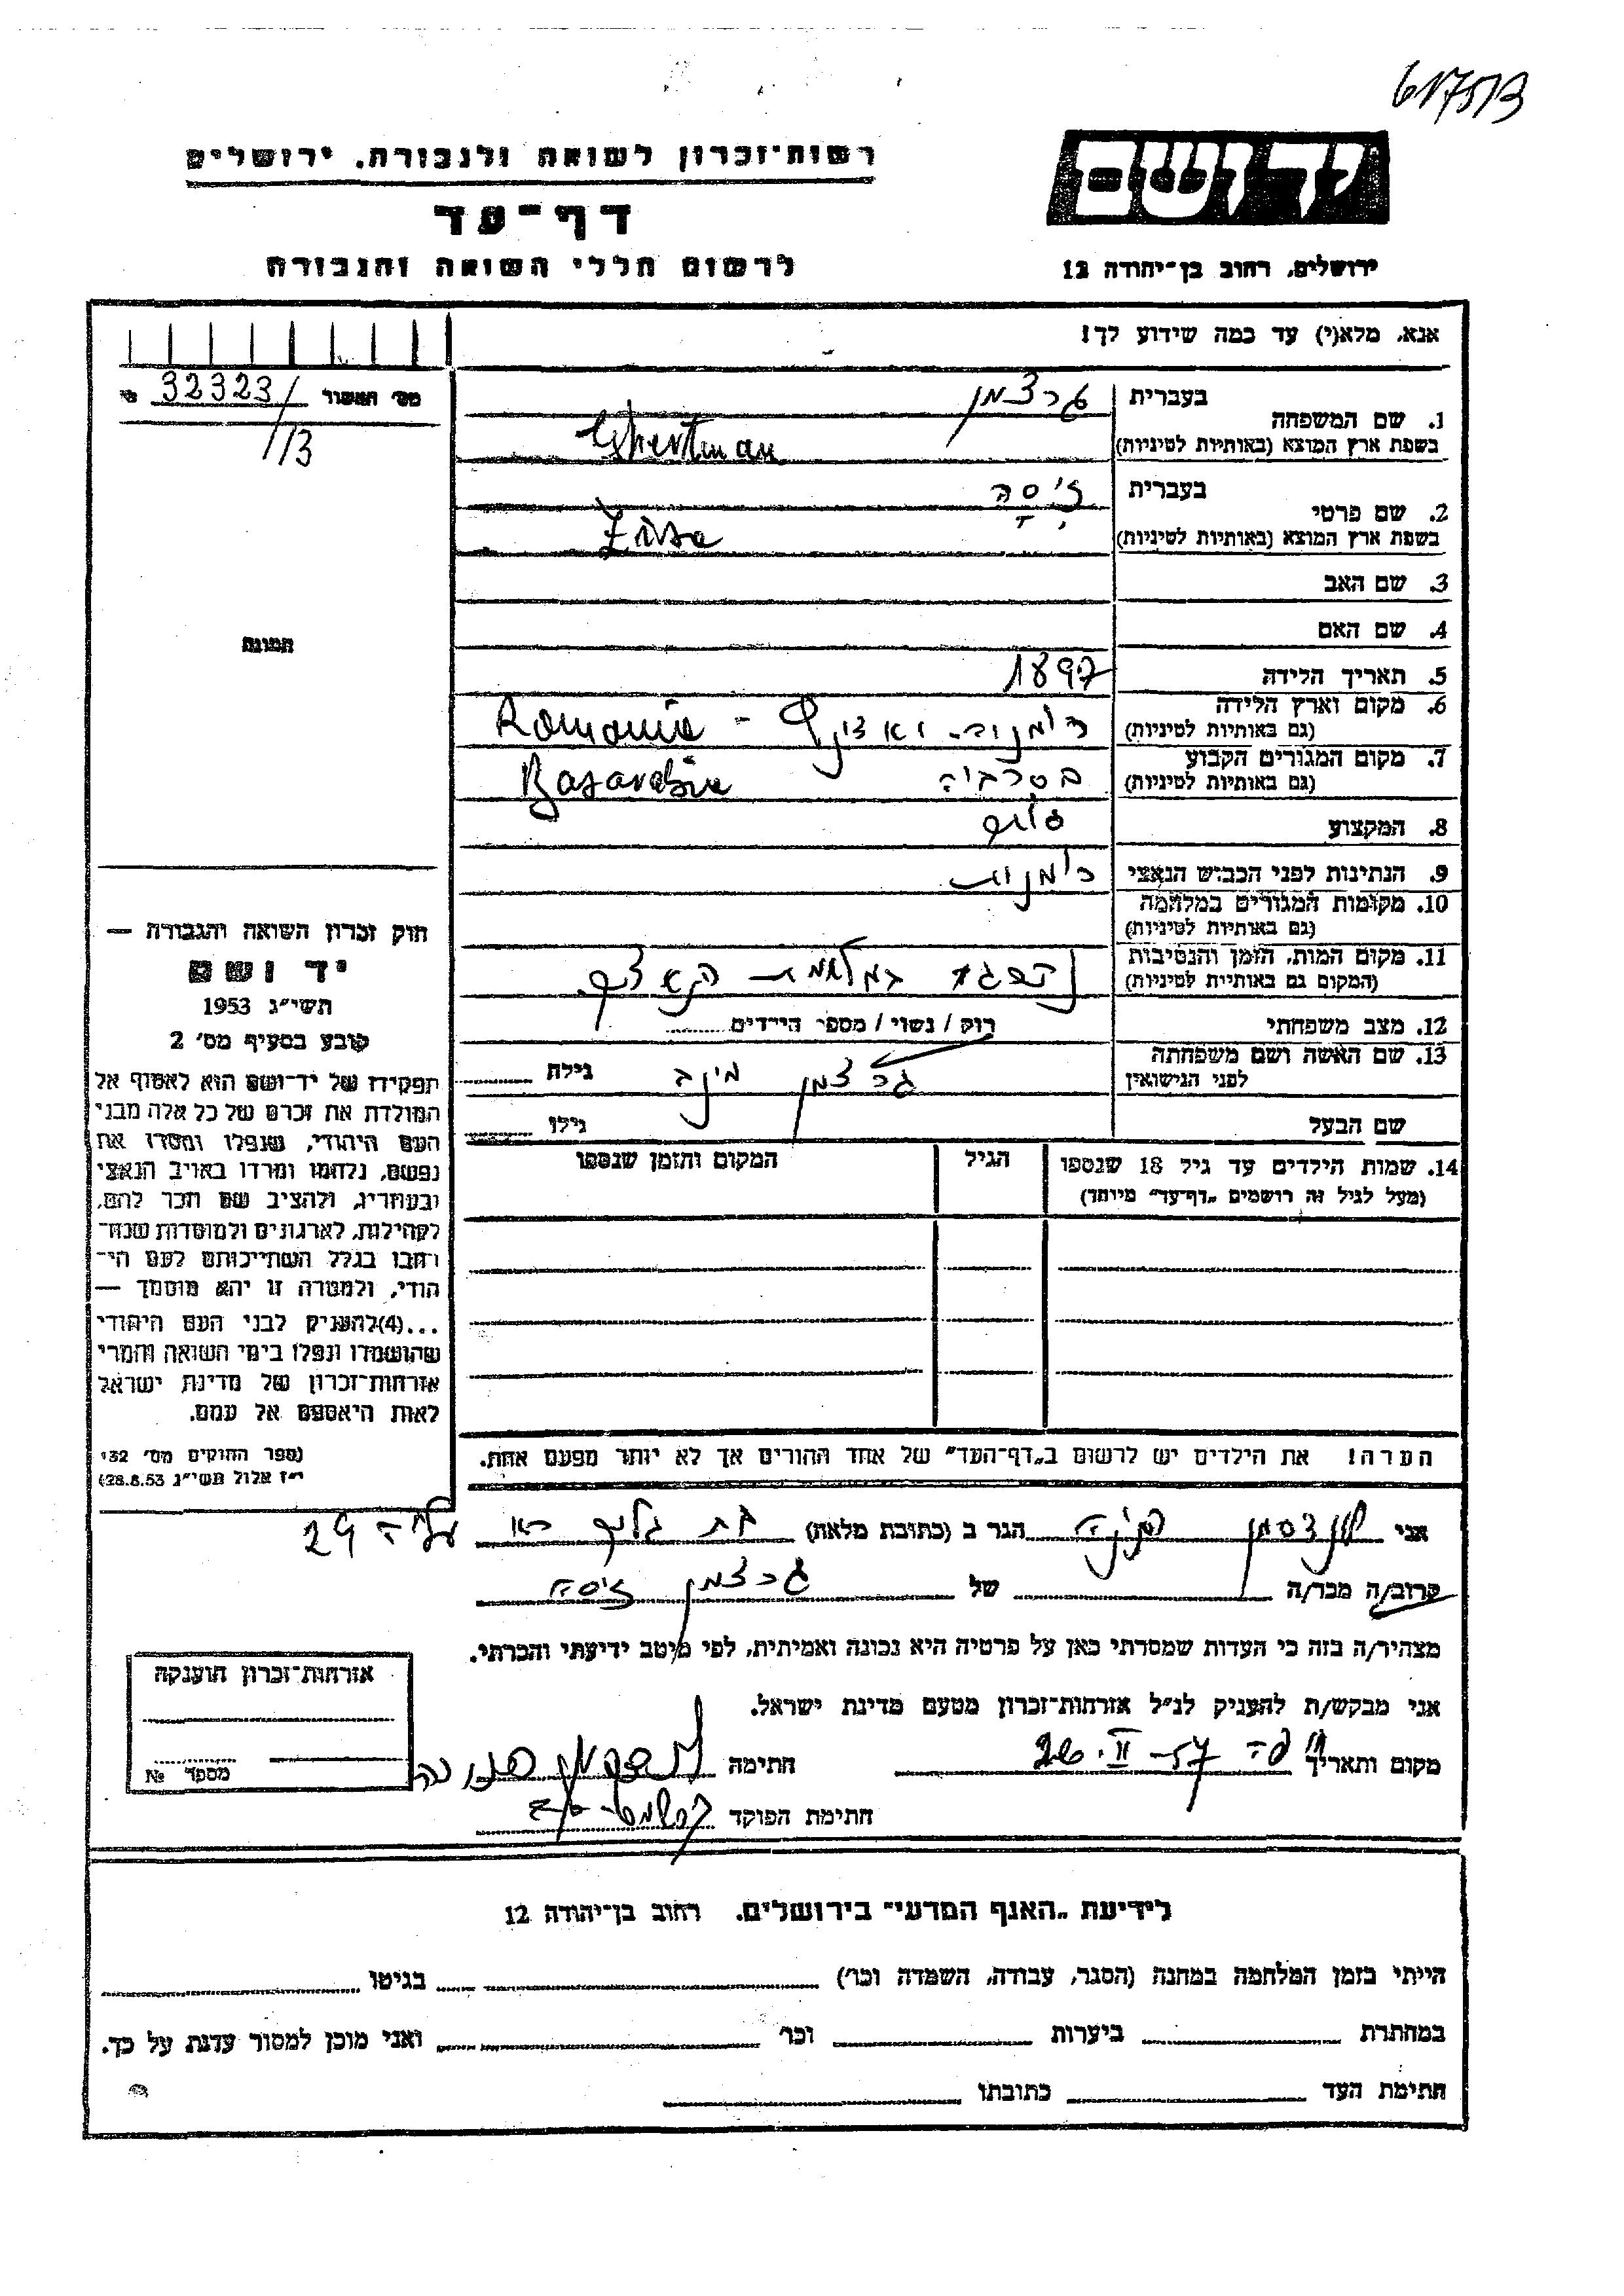 617513
רשות־זכרון לשואה ולגבורה, ירושלים
יד ושם
דף־עד
לרשום חללי השואה והגבורה
ירושלים, רחוב בן־יהודה 12
אנא, מלא(י) עד כמה שידוע לך!
מס' האשור 32323/
113
1. שם המשפחה
בעברית גרצמן
בשפת ארץ המוצא (באותיות לטיניות) Ghertman
2. שם פרטי
בעברית זיסה
בשפת ארץ המוצא (באותיות לטיניות) Zissa
3. שם האב
4. שם האם
תמונה
5. תאריך הלידה 1897
6. מקום וארץ הלידה
(גם באותיות לטיניות) Romania -
7. מקום המגורים הקבוע
(גם באותיות לטיניות) בסרביה Basarabia
8. המקצוע
9. הנתינות לפני הכבוש הנאצי
10. מקומות המגורים במלחמה
(גם באותיות לטיניות)
11. מקום המות, הזמן והנסיבות
(המקום גם באותיות לטיניות) במלחמת
12. מצב משפחתי רוק / נשוי / מספר הילדים
13. שם האשה ושם משפחתה
לפני הנישואין גרצמן גילה
שם הבעל גילו
14. שמות הילדים עד גיל 18 שנספו הגיל המקום והזמן שנספו
(מעל לגיל זה רושמים „דף־עד” מיוחד)
חוק זכרון השואה והגבורה —
יד ושם
תשי״ג 1953
קובע בסעיף מס' 2
תפקידו של יד־ושם הוא לאסוף אל
המולדת את זכרם של כל אלה מבני
העם היהודי, שנפלו ומסרו את
נפשם, נלחמו ומרדו באויב הנאצי
ובעוזריו, ולהציב שם וזכר להם,
לקהילות, לארגונים ולמוסדות שנח־
רבו בגלל השתייכותם לעם הי־
הודי, ולמטרה זו יהא מוסמך —
...(4)להעניק לבני העם היהודי
שהושמדו ונפלו בימי השואה והמרי
אזרחות־זכרון של מדינת ישראל
לאות היאספם אל עמם.
(ספר החוקים מס' 132
י״ז אלול תשי״ג 28.8.53)
הערה! את הילדים יש לרשום ב„דף־העד” של אחד ההורים אך לא יותר מפעם אחת.
אני הגר ב (כתובת מלאה) 29
קרוב/ה מכר/ה של גרצמן זיסה
מצהיר/ה בזה כי העדות שמסרתי כאן על פרטיה היא נכונה ואמיתית, לפי מיטב ידיעתי והכרתי.
אני מבקש/ת להעניק לנ״ל אזרחות־זכרון מטעם מדינת ישראל.
מקום ותאריך 26.II-57 חתימה
חתימת הפוקד
אזרחות־זכרון הוענקה
מספר №
לידיעת „האגף המדעי” בירושלים. רחוב בן־יהודה 12
הייתי בזמן המלחמה במחנה (הסגר, עבודה, השמדה וכו') בגיטו
במחתרת ביערות וכו' ואני מוכן למסור עדות על כך.
חתימת העד כתובתו